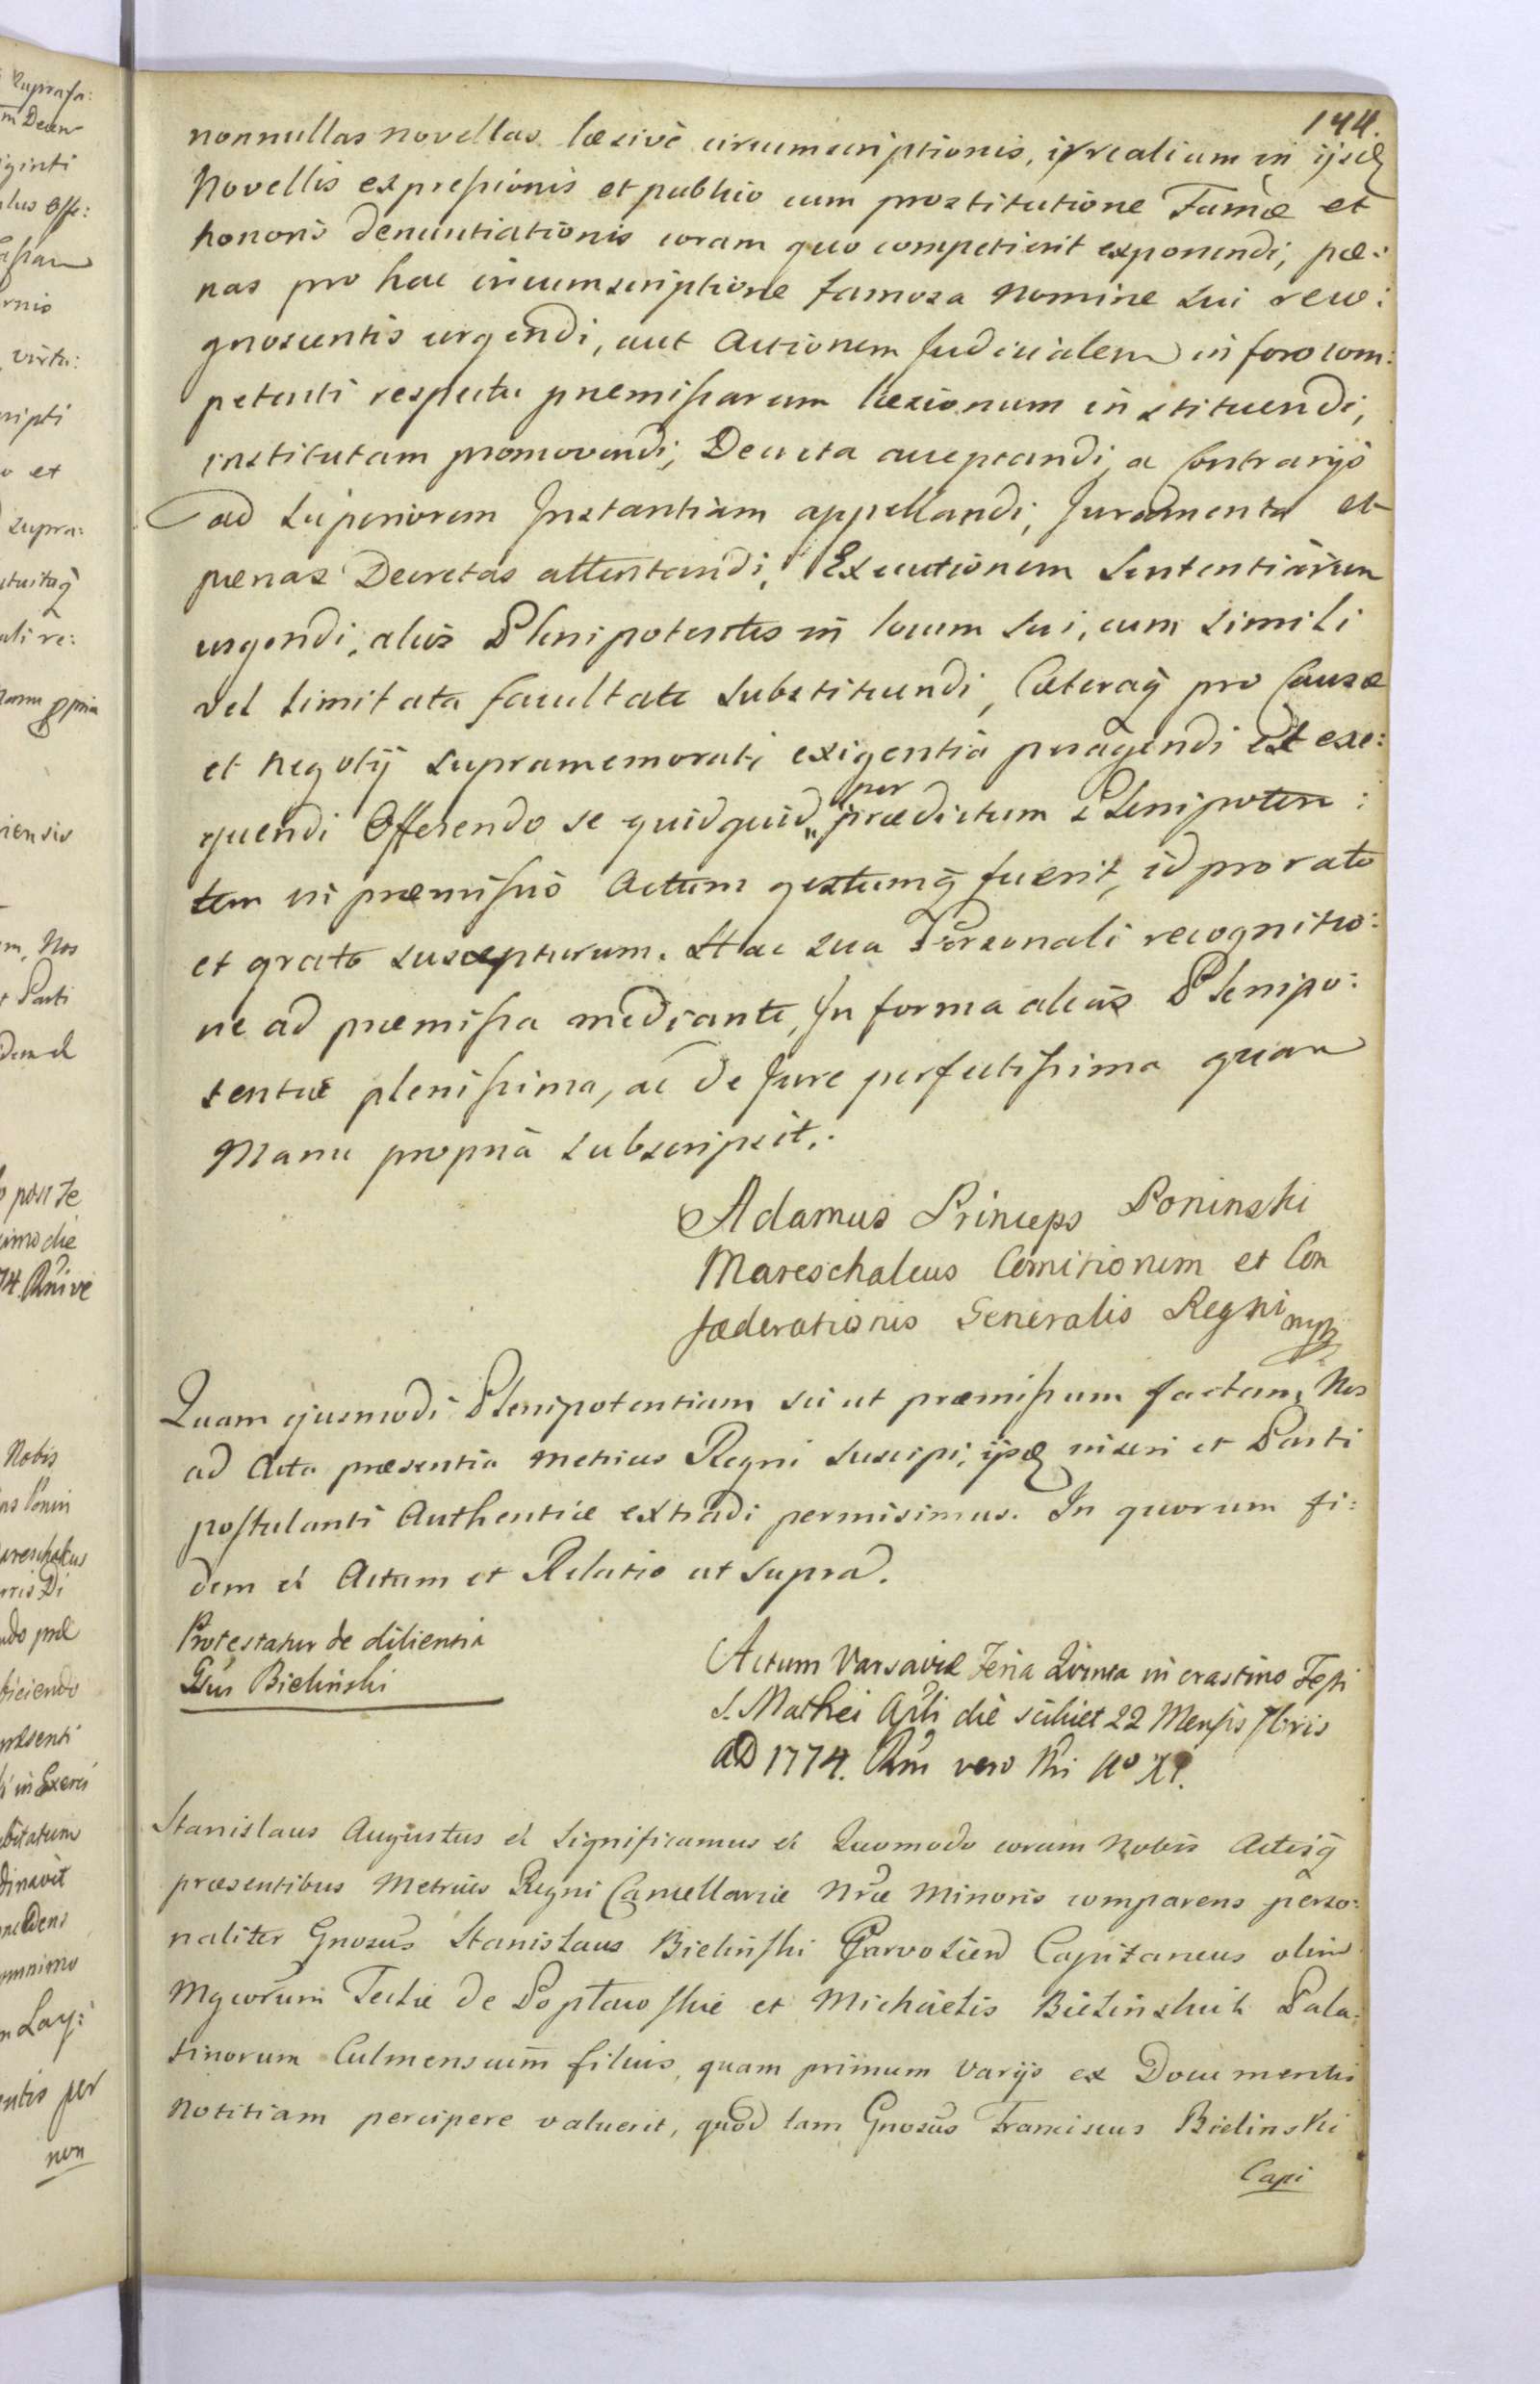 144.
nonnullas novellas læsivè circumscriptionis, irrealium in ijsdẽ
Novellis expressionis et publico cum prostitutione Famæ et
honoris denuntiationis coram quo competierit exponendi, pæ:
nas pro hac circumscriptione famosa nomine sui reco:
gnoscentis urgendi, aut Actionem Judicialem in foro com:
petenti respectu præmissarum læsionum instituendi,
institutam promovendi, Decreta acceptandi, a Contrarijs
ad Superiorem Instantiam appellandi, Juramenta et
pænas Decretas attentandi, Executionem Sententiarum
urgendi, alios Plenipotentes in locum sui, cum simili
vel limitata facultate substituendi, Cæteraq̃ pro Causæ
et negotij supramemorati exigentia peragendi et exe:
quendi Offerendo se quidquid per prædictum Plenipoten:
tem in præmissis Actum gestumq̃ fuerit, id pro rato
et grato suscepturum. Hac sua Personali recognitio:
ne ad præmissa mediante, In forma alias Plenipo:
tentiæ plenissima, ac de Jure perfectissima quam
Manu propria subscripsit.
Adamus Princeps Poninski
Mareschalcus Comitiorum et Con
fæderationis Generalis Regni mpp
Quam ejusmodi Plenipotentiam sic ut præmissum factam, Nos
ad Acta præsentia Metrices Regni suscipi, ijsdẽ inseri et Parti
postulanti Authentice extradi permisimus. In quorum fi:
dem et Actum et Relatio ut supra.
Protestatur de dilientia
Gsus Bielinski
Actum Varsaviæ Feria Quinta in crastino Festi
S. Mathei Apli die scilicet 22 Mensis 7bris
AD 1774. Rni vero Nri Ao XI.
Stanislaus Augustus et Significamus et Quomodo coram Nobis Actisq̃
præsentibus Metrices Regni Cancellariæ Nræ Minoris comparens perso:
naliter Gnosus Stanislaus Bielinski Garvolien Capitaneus olim
Mgcorum Teclæ de Popławskie et Michaelis Bielinskich Pala:
tinorum Culmensium filius, quam primum varijs ex Documentis
notitiam percipere valuerit, quod tam Gnosus Franciscus Bielinski
Capi